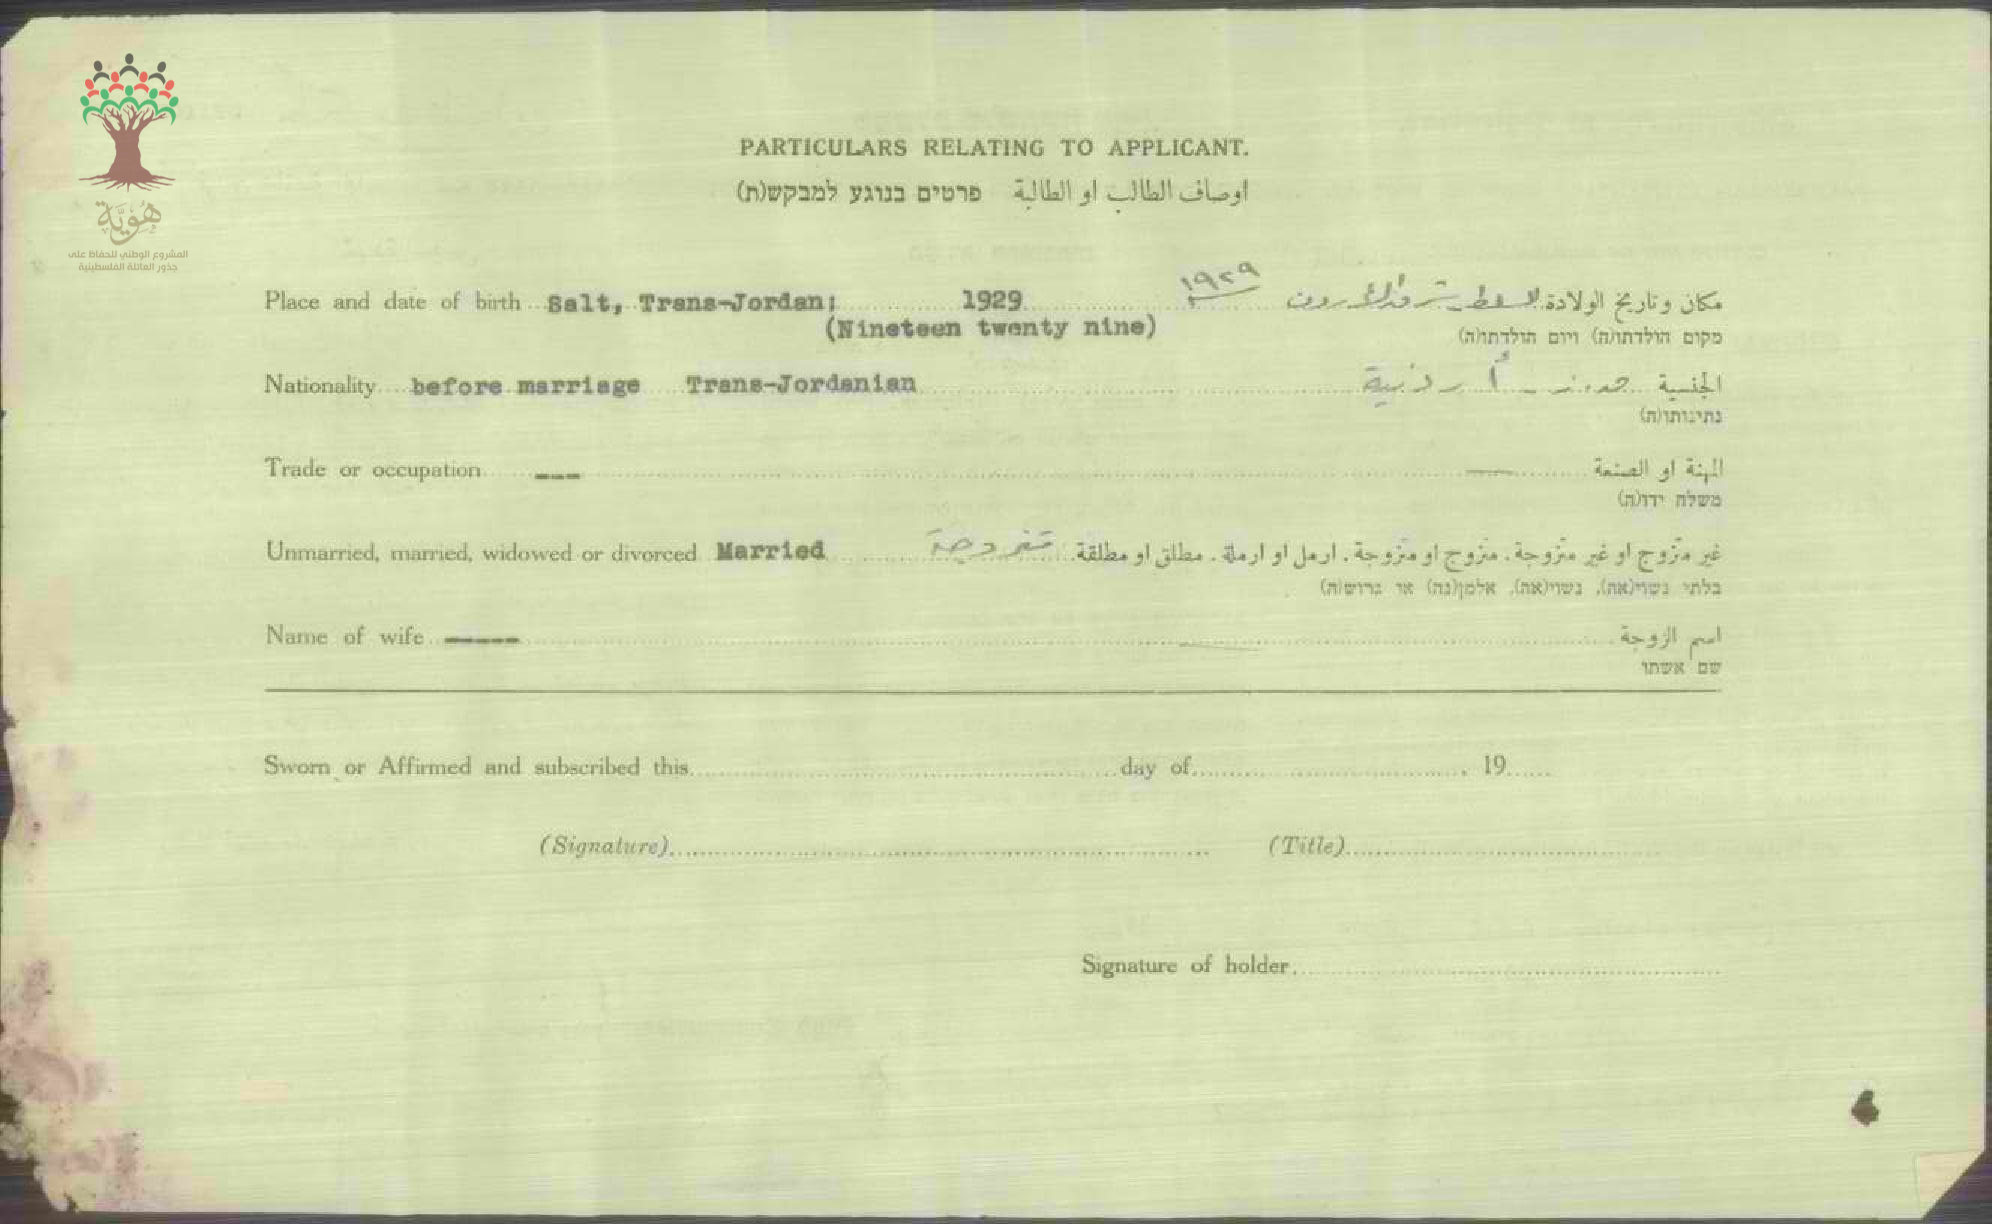 هُوِيَّة
المشروع الوطني للحفاظ على
جذور العائلة الفلسطينية
PARTICULARS RELATING TO APPLICANT.
اوصاف الطالب او الطالبة פרטים בנוגע למבקש(ת)
Place and date of birth Salt, Trans-Jordan; 1929 ١٩٢٩ السلط - شرق الأردن مكان وتاريخ الولادة
(Nineteen twenty nine)
מקום הולדתו(ה) ויום הולדתו(ה)
Nationality before marriage Trans-Jordanian أردنية الجنسية
נתינותו(ה)
Trade or occupation --- المهنة او الصنعة
משלח ידו(ה)
Unmarried, married, widowed or divorced Married متزوجة غير متزوج او غير متزوجة. متزوج او متزوجة. ارمل او ارملة. مطلق او مطلقة
בלתי נשוי(אה), נשוי(אה), אלמן(נה) או גרוש(ה)
Name of wife ----- اسم الزوجة
שם אשתו
Sworn or Affirmed and subscribed this day of 19
(Signature) (Title)
Signature of holder